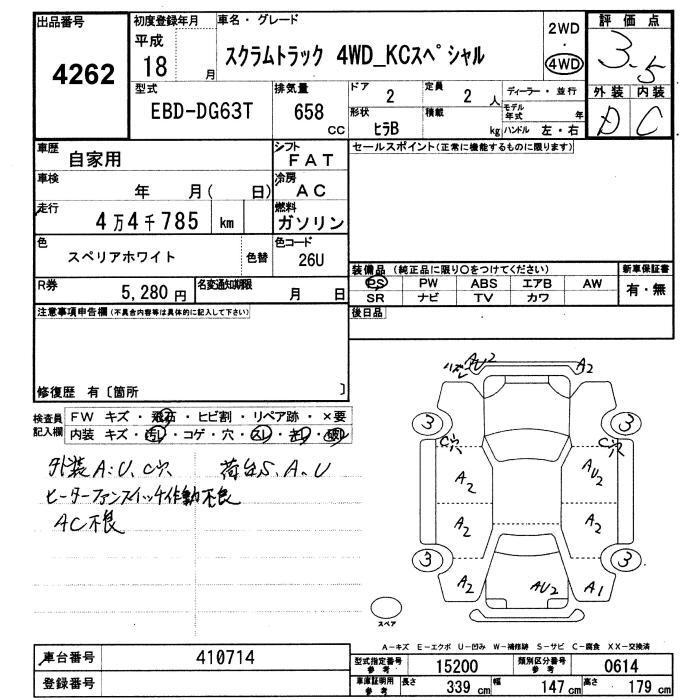 出品番号 初度登録年月 車名・グレード
4262 平成 18 月 スクラムトラック 4WD_KCスペシャル 2WD ・ 4WD
評価点 3.5
型式 EBD-DG63T 排気量 658 cc
ドア 2 定員 2 人 ディーラー・並行
形状 ヒラB 積載 kg モデル年式 年
ハンドル 左・右
外装 内装
D C
車歴 自家用 シフト FAT
セールスポイント(正常に機能するものに限ります)
車検 年 月( 日) 冷房 AC
走行 4万4千785 km 燃料 ガソリン
色 スペリアホワイト 色替 色コード 26U
装備品(純正品に限り〇をつけてください) 新車保証書
PS PW ABS エアB AW 有・無
SR ナビ TV カワ
R券 5,280 円 名変通知期限 月 日
後日品
注意事項申告欄(不具合内容等は具体的に記入して下さい)
修復歴 有〔箇所 〕
検査員記入欄
FW キズ・飛石・ヒビ割・リペア跡・×要
内装 キズ・汚レ・コゲ・穴・スレ・キレ・破レ
外装A.U.C穴 荷台S.A.U
ヒーターファンスイッチ作動不良
AC不良
ハズレ AU2 A2
3 3
C穴 C穴
A2 AU2
A2 A2
3 3
A2 AU2 A1
スペア
A-キズ E-エクボ U-凹み W-補修跡 S-サビ C-腐食 XX-交換済
車台番号 410714
型式指定番号 参考 15200 類別区分番号 参考 0614
登録番号
車庫証明用 参考 長さ 339 cm 幅 147 cm 高さ 179 cm